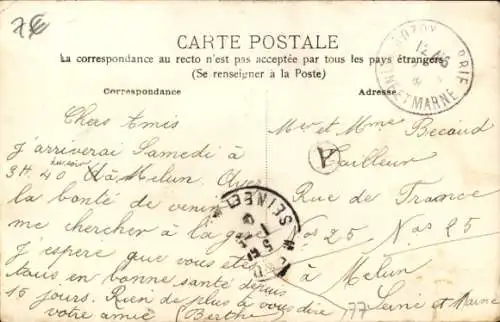 7€
CARTE POSTALE
La correspondance au recto n'est pas acceptée par tous les pays étrangers
(Se renseigner à la Poste)
Correspondance
Adresse
BRIE
SEINE ET MARNE
Chers Amis
J'arriverai Samedi à
3H.40 du soir à Melun. Ayez
la bonté de venir
me chercher à la gare
J'espère que vous êtes
tous en bonne santé depuis
15 jours. Rien de plus à vous dire,
votre amie Berthe
Mr et Mme Becaud
Tailleur
Rue de France
Nos 25 Nos 25
à Melun
77 Seine et Marne
A
SEINE ET